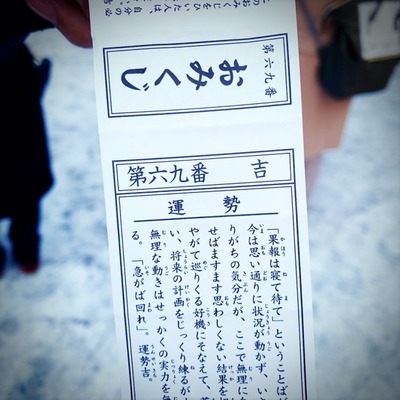 このおみくじをひいた人は、自分の必
第六九番
おみくじ
第六九番 吉
運勢
「果報は寝て待て」ということば
今は思い通りに状況が動かず、い
りがちの気分だが、ここで無理に
せばますます思わしくない結果を
やがて巡りくる好機にそなえて、
い、将来の計画をじっくり練るが
無理な動きはせっかくの実力を無
る。「急がば回れ」。運勢吉。